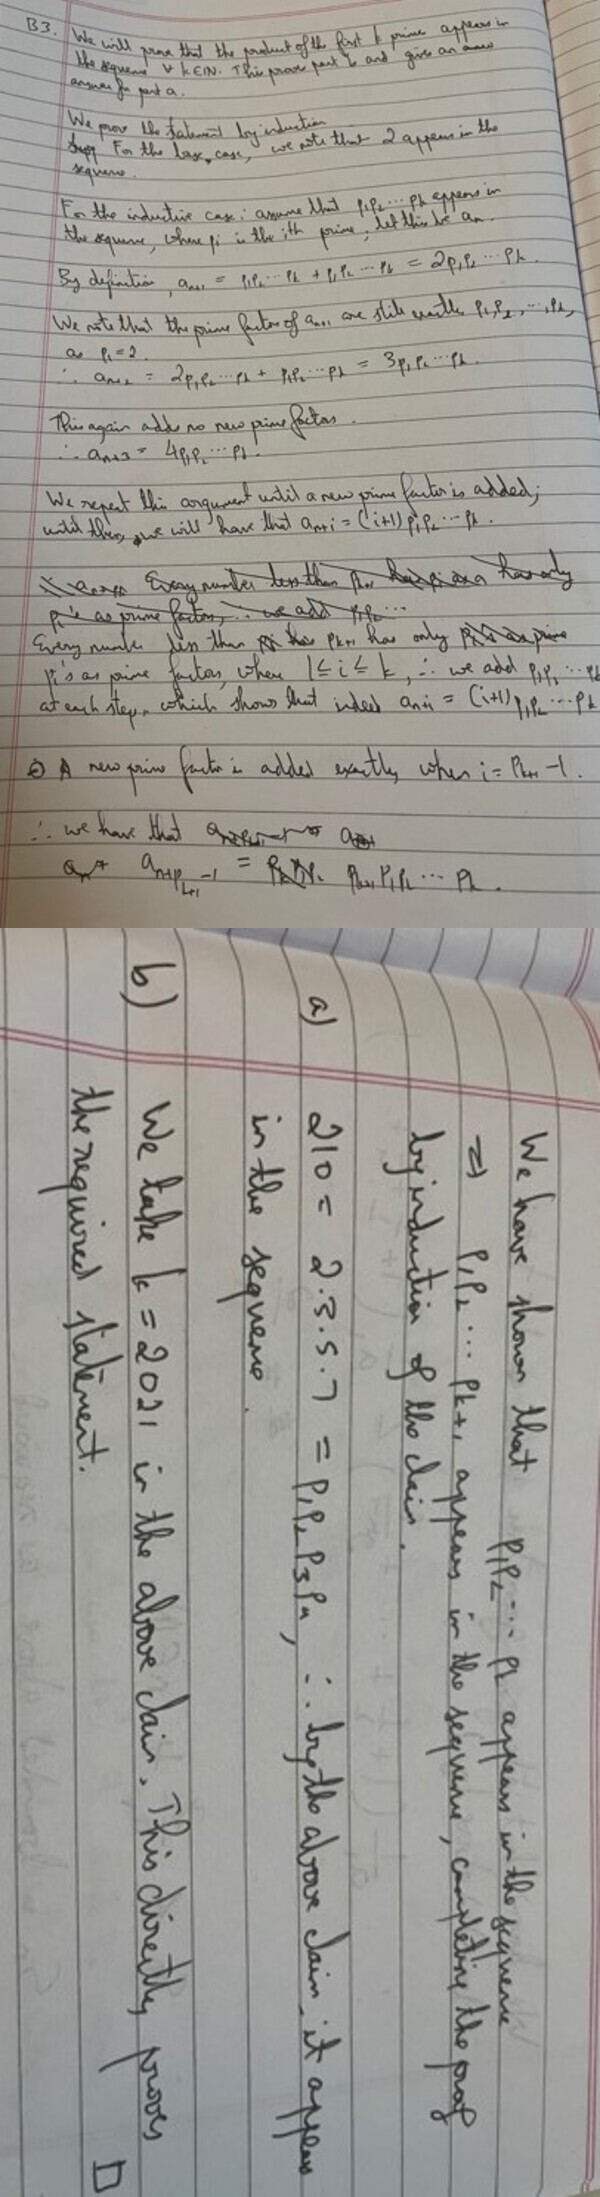 B3. We will prove that the product of the first k primes appears in
the sequence ∀ k ∈ ℕ. This proves part b and gives an
answer for part a.
We prove the statement by induction
For the base case, we note that 2 appears in the
sequence.
For the inductive case: assume that p₁p₂⋯pk appears in
the sequence, where pi is the ith prime, let this be an.
By definition, an+1 = p₁p₂⋯pk + p₁p₂⋯pk = 2p₁p₂⋯pk.
We note that the prime factors of an+1 are still exactly p₁,p₂,⋯,pk,
as p₁=2.
∴ an+2 = 2p₁p₂⋯pk + p₁p₂⋯pk = 3p₁p₂⋯pk.
This again adds no new prime factors.
∴ an+3 = 4p₁p₂⋯pk.
We repeat this argument until a new prime factor is added;
until then, we will have that an+i = (i+1)p₁p₂⋯pk.
Every number less than pk+1 has only
pi's as prime factors, ∴ we add p₁p₂⋯
Every number less than pk+1 has only
pi's as prime factors, where 1≤i≤k, ∴ we add p₁p₂⋯pk
at each step, which shows that indeed an+i = (i+1)p₁p₂⋯pk
A new prime factor is added exactly when i = pk+1 -1.
∴ we have that
an+pk+1-1 = pk+1p₁p₂⋯pk.
We have shown that p₁p₂⋯pk appears in the sequence
⇒ p₁p₂⋯pk+1 appears in the sequence, completing the proof
by induction of the claim.
a) 210 = 2.3.5.7 = p₁p₂p₃p₄, ∴ by the above claim, it appears
in the sequence.
b) We take k = 2021 in the above claim. This directly proves
the required statement. □